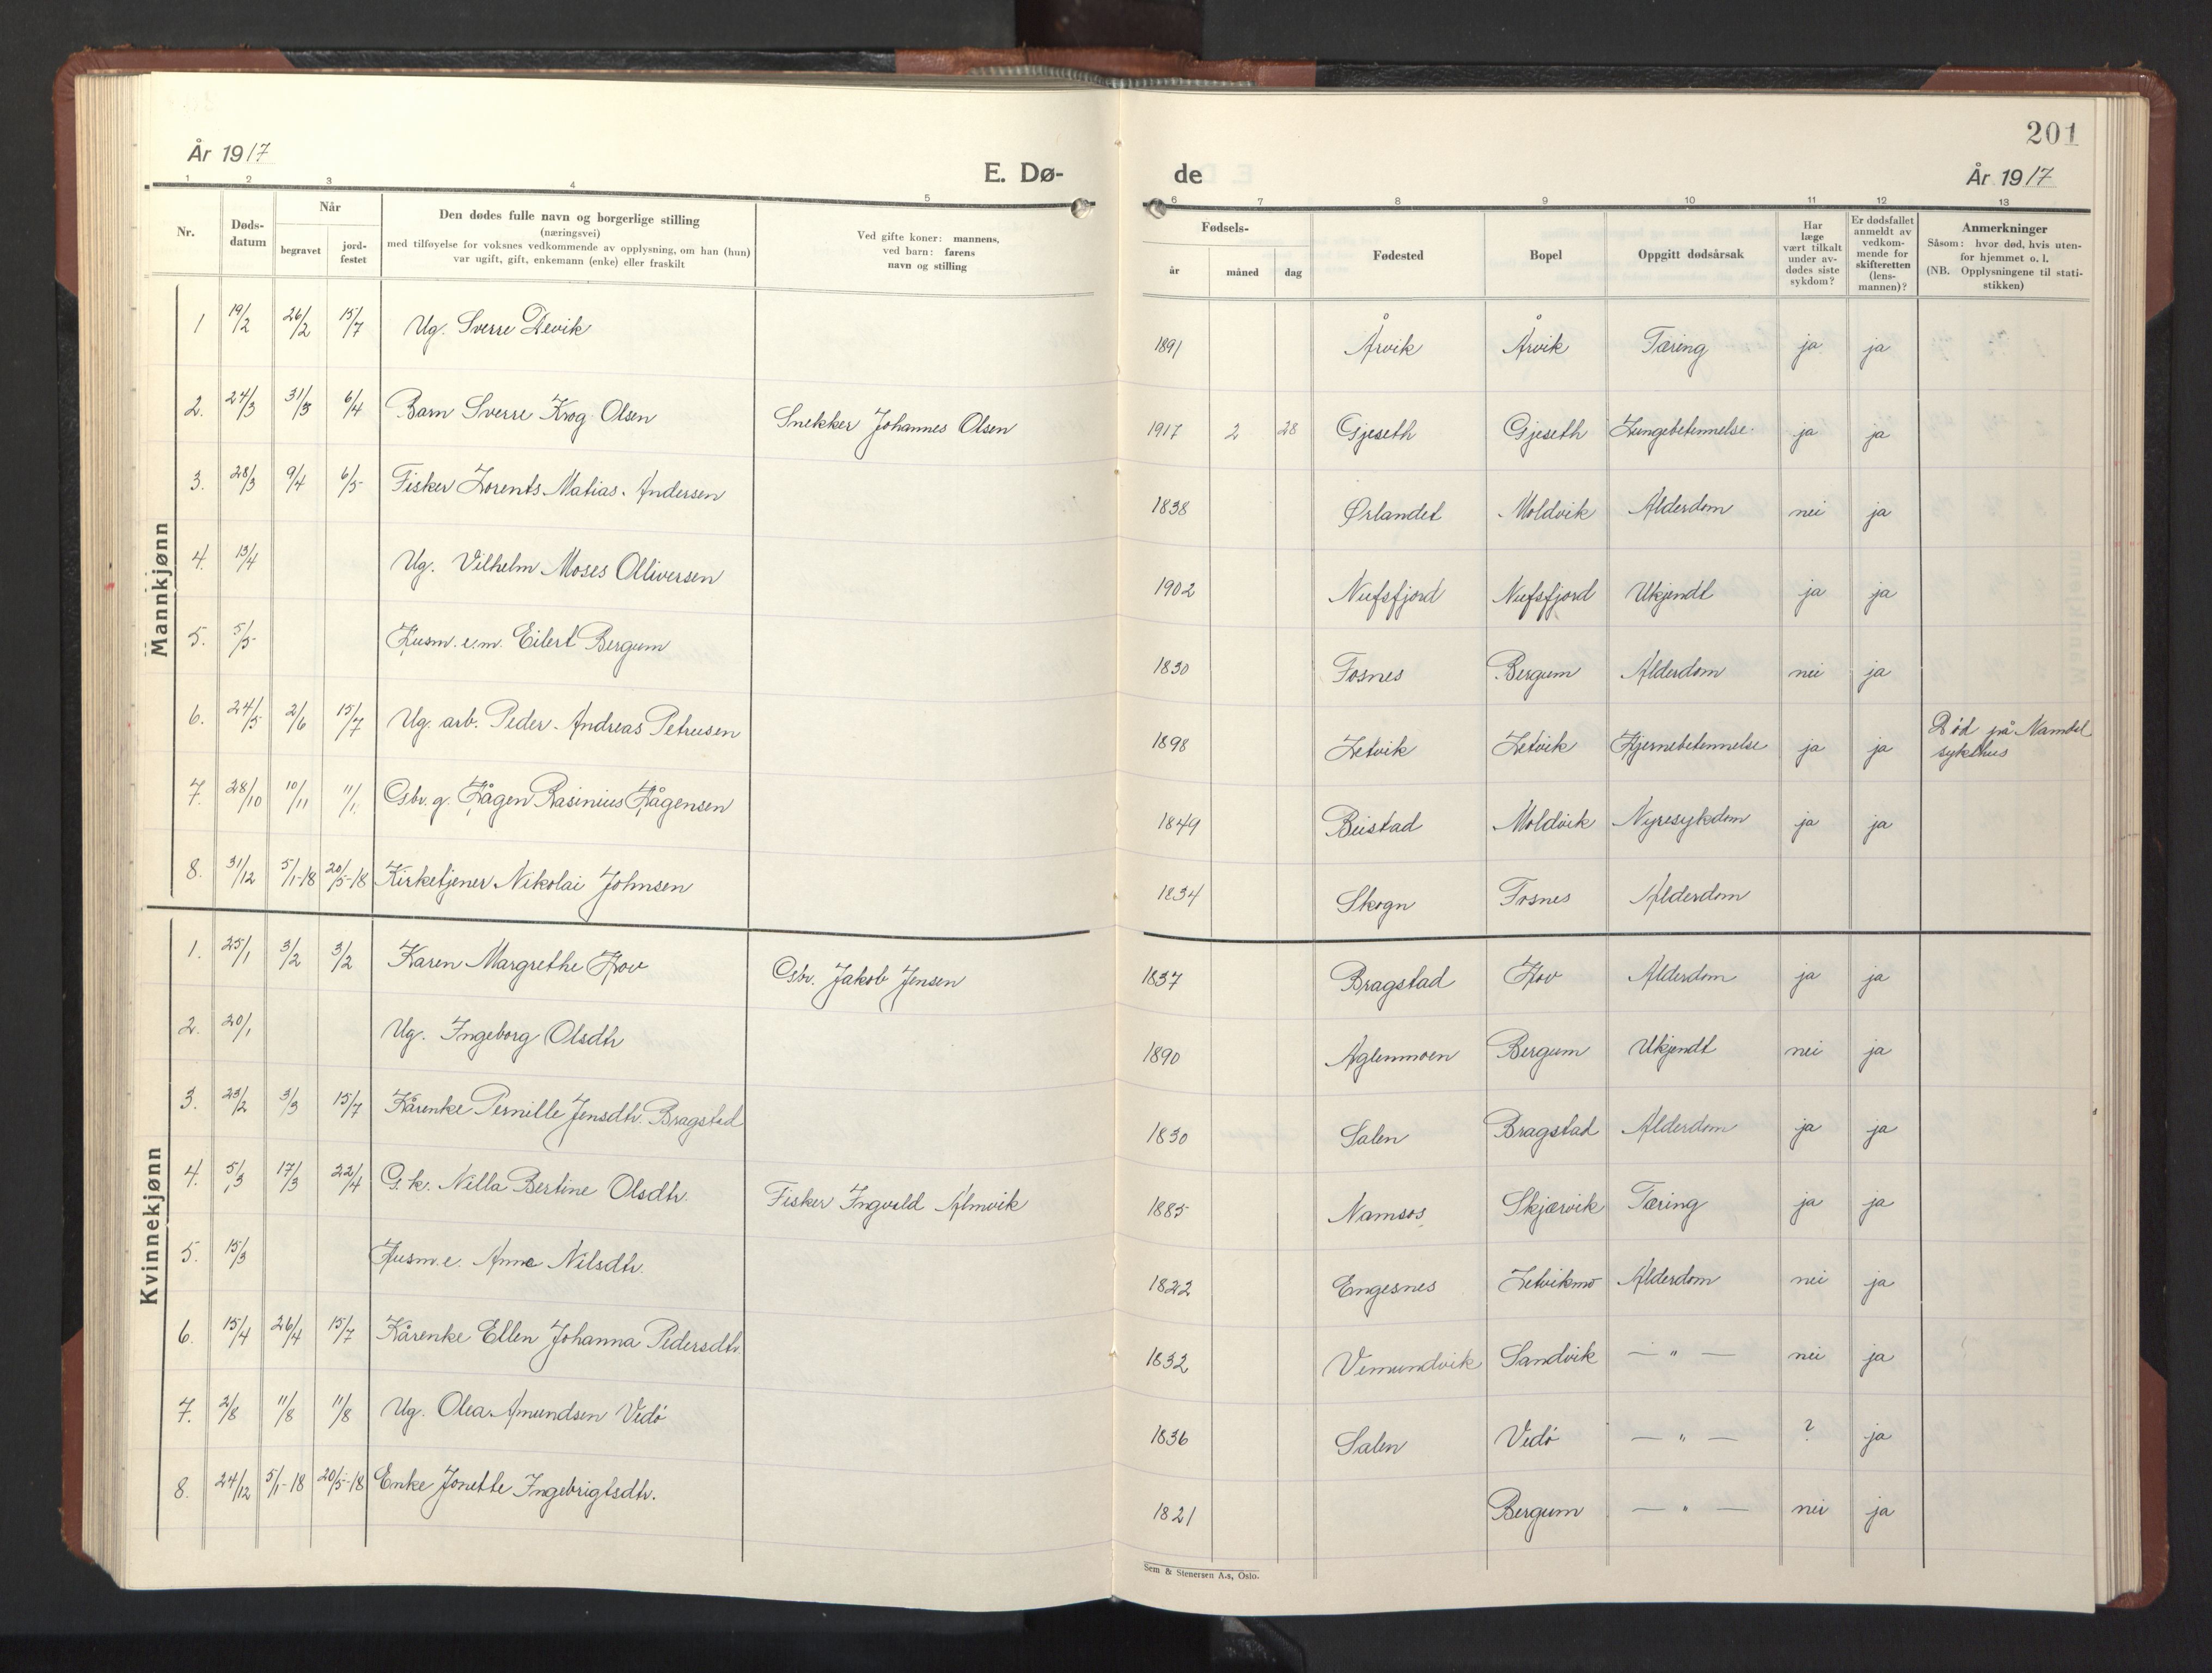 201
År 1917
E. Dø-
de
År 1917
1 2 3 4 5 6 7 8 9 10 11 12 13
Nr.
Døds-
datum
Når
begravet
jord-
festet
Den dødes fulle navn og borgerlige stilling
(næringsvei)
med tilføyelse for voksnes vedkommende av opplysning, om han (hun)
var ugift, gift, enkemann (enke) eller fraskilt
Ved gifte koner: mannens,
ved barn: farens
navn og stilling
Fødsels-
år
måned
dag
Fødested
Bopel
Oppgitt dødsårsak
Har
læge
vært tilkalt
under av-
dødes siste
sykdom?
Er dødsfallet
anmeldt av
vedkom-
mende for
skifteretten
(lens-
mannen)?
Anmerkninger
Såsom: hvor død, hvis uten-
for hjemmet o. l.
(NB. Opplysningene til stati-
stikken)
Mannkjønn
1 19/2 26/2 15/7 Ug. Sverre Devik 1891 Årvik Årvik Tæring ja ja
2. 24/3 31/3 6/4 Barn Sverre Krog Olsen Snekker Johannes Olsen 1917 2 28 Gjeseth Gjeseth Lungebetennelse. ja ja
3. 28/3 9/4 6/5 Fisker Lorents Matias Andersen 1838 Ørlandet Moldvik Alderdom nei ja
4. 13/4 Ug. Vilhelm Moses Olliversen 1902 Nufsfjord Nufsfjord Ukjendt ja ja
5. 5/5 Husm. e.m. Eilert Bergum 1830 Fosnes Bergum Alderdom nei ja
6. 24/5 2/6 15/7 Ug. arb. Peder Andreas Petrusen 1898 Letvik Letvik Hjernebetennelse ja ja Död på Namdal
sykehus
7. 28/10 10/11 11/1. Gbr. g. Hågen Rasinius Hågensen 1849 Beistad Moldvik Nyresykdom ja ja
8. 31/12 5/1-18 20/5-18 Kirketjener Nikolai Johnsen 1834 Skogn Fosnes Alderdom
Kvinnekjønn
1. 25/1 3/2 3/2 Karen Margrethe Hov Gbr. Jakob Jensen 1837 Bragstad Hov Alderdom ja ja
2. 20/1 Ug. Ingeborg Olsdtr 1890 Aglenmoen Bergum Ukjendt nei ja
3. 23/2 3/3 15/7 Kårenke Pernille Jensdtr. Bragstad 1830 Salen Bragstad Alderdom ja ja
4. 5/3 17/3 22/4 G. k. Nilla Bertine Olsdtr. Fisker Ingvald Almvik 1885 Namsos Skjærvik Tæring ja ja
5. 15/3 Husm. e. Anna Nilsdtr. 1822 Engesnes Letvikmo Alderdom nei ja
6. 15/4 26/4 15/7 Kårenke Ellen Johanna Pedersdtr. 1832 Vemundvik Sandvik — " — nei ja
7. 2/8 11/8 11/8 Ug. Olea Amundsen Vedö 1836 Salen Vedö — " — ? ja
8. 24/12 5/1-18 20/5-18 Enke Jonette Ingebrigtsdtr. 1821 Bergum — " — nei ja
Sem & Stenersen A.s, Oslo.